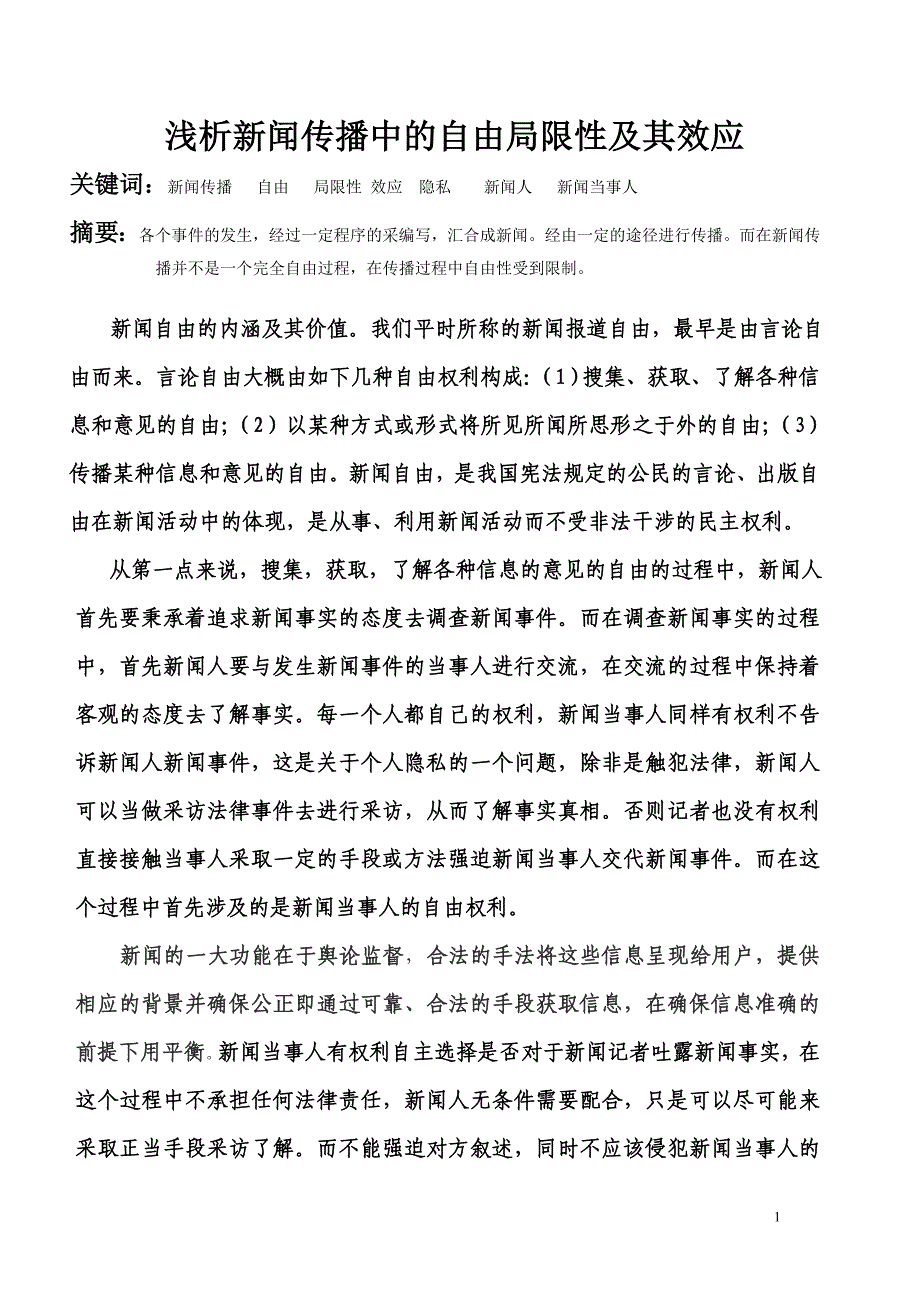 浅析新闻传播中的自由局限性及其效应
关键词：新闻传播 自由 局限性 效应 隐私 新闻人 新闻当事人
摘要：各个事件的发生，经过一定程序的采编写，汇合成新闻。经由一定的途径进行传播。而在新闻传
播并不是一个完全自由过程，在传播过程中自由性受到限制。
新闻自由的内涵及其价值。我们平时所称的新闻报道自由，最早是由言论自
由而来。言论自由大概由如下几种自由权利构成：（1）搜集、获取、了解各种信
息和意见的自由；（2）以某种方式或形式将所见所闻所思形之于外的自由；（3）
传播某种信息和意见的自由。新闻自由，是我国宪法规定的公民的言论、出版自
由在新闻活动中的体现，是从事、利用新闻活动而不受非法干涉的民主权利。
从第一点来说，搜集，获取，了解各种信息的意见的自由的过程中，新闻人
首先要秉承着追求新闻事实的态度去调查新闻事件。而在调查新闻事实的过程
中，首先新闻人要与发生新闻事件的当事人进行交流，在交流的过程中保持着
客观的态度去了解事实。每一个人都自己的权利，新闻当事人同样有权利不告
诉新闻人新闻事件，这是关于个人隐私的一个问题，除非是触犯法律，新闻人
可以当做采访法律事件去进行采访，从而了解事实真相。否则记者也没有权利
直接接触当事人采取一定的手段或方法强迫新闻当事人交代新闻事件。而在这
个过程中首先涉及的是新闻当事人的自由权利。
新闻的一大功能在于舆论监督，合法的手法将这些信息呈现给用户，提供
相应的背景并确保公正即通过可靠、合法的手段获取信息，在确保信息准确的
前提下用平衡。新闻当事人有权利自主选择是否对于新闻记者吐露新闻事实，在
这个过程中不承担任何法律责任，新闻人无条件需要配合，只是可以尽可能来
采取正当手段采访了解。而不能强迫对方叙述，同时不应该侵犯新闻当事人的
1